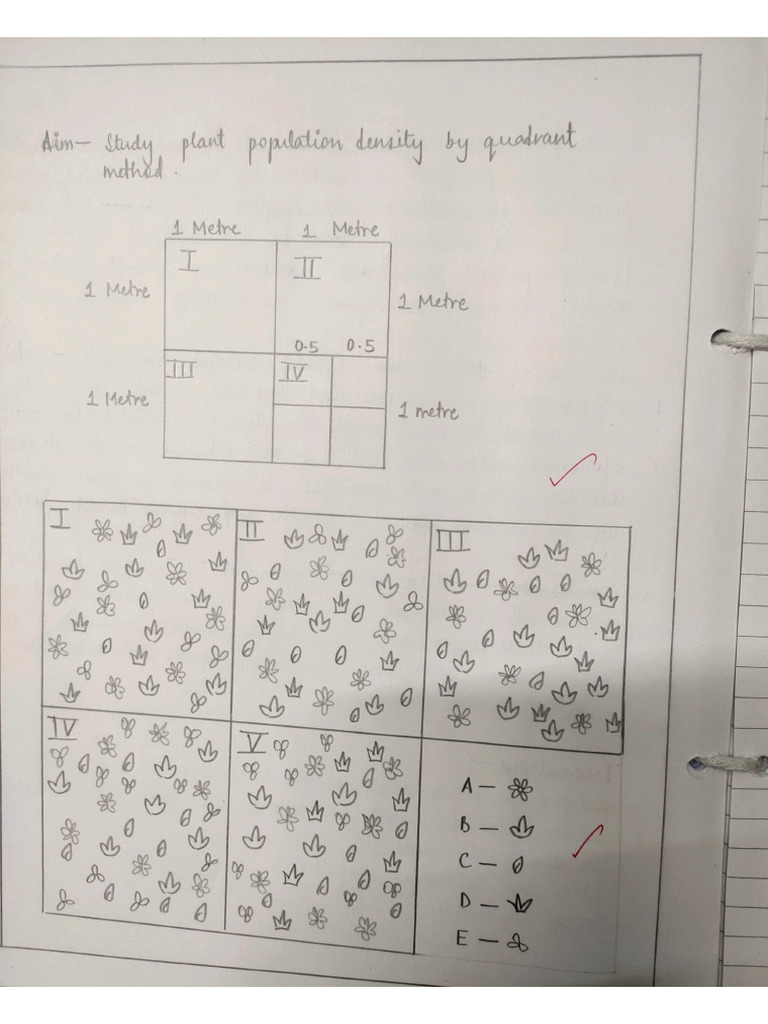 Aim— Study plant population density by quadrant
method.
1 Metre 1 Metre
I II
1 Metre 1 Metre
0.5 0.5
III IV
1 Metre 1 metre
I II III
IV V
A —
B —
C —
D —
E —